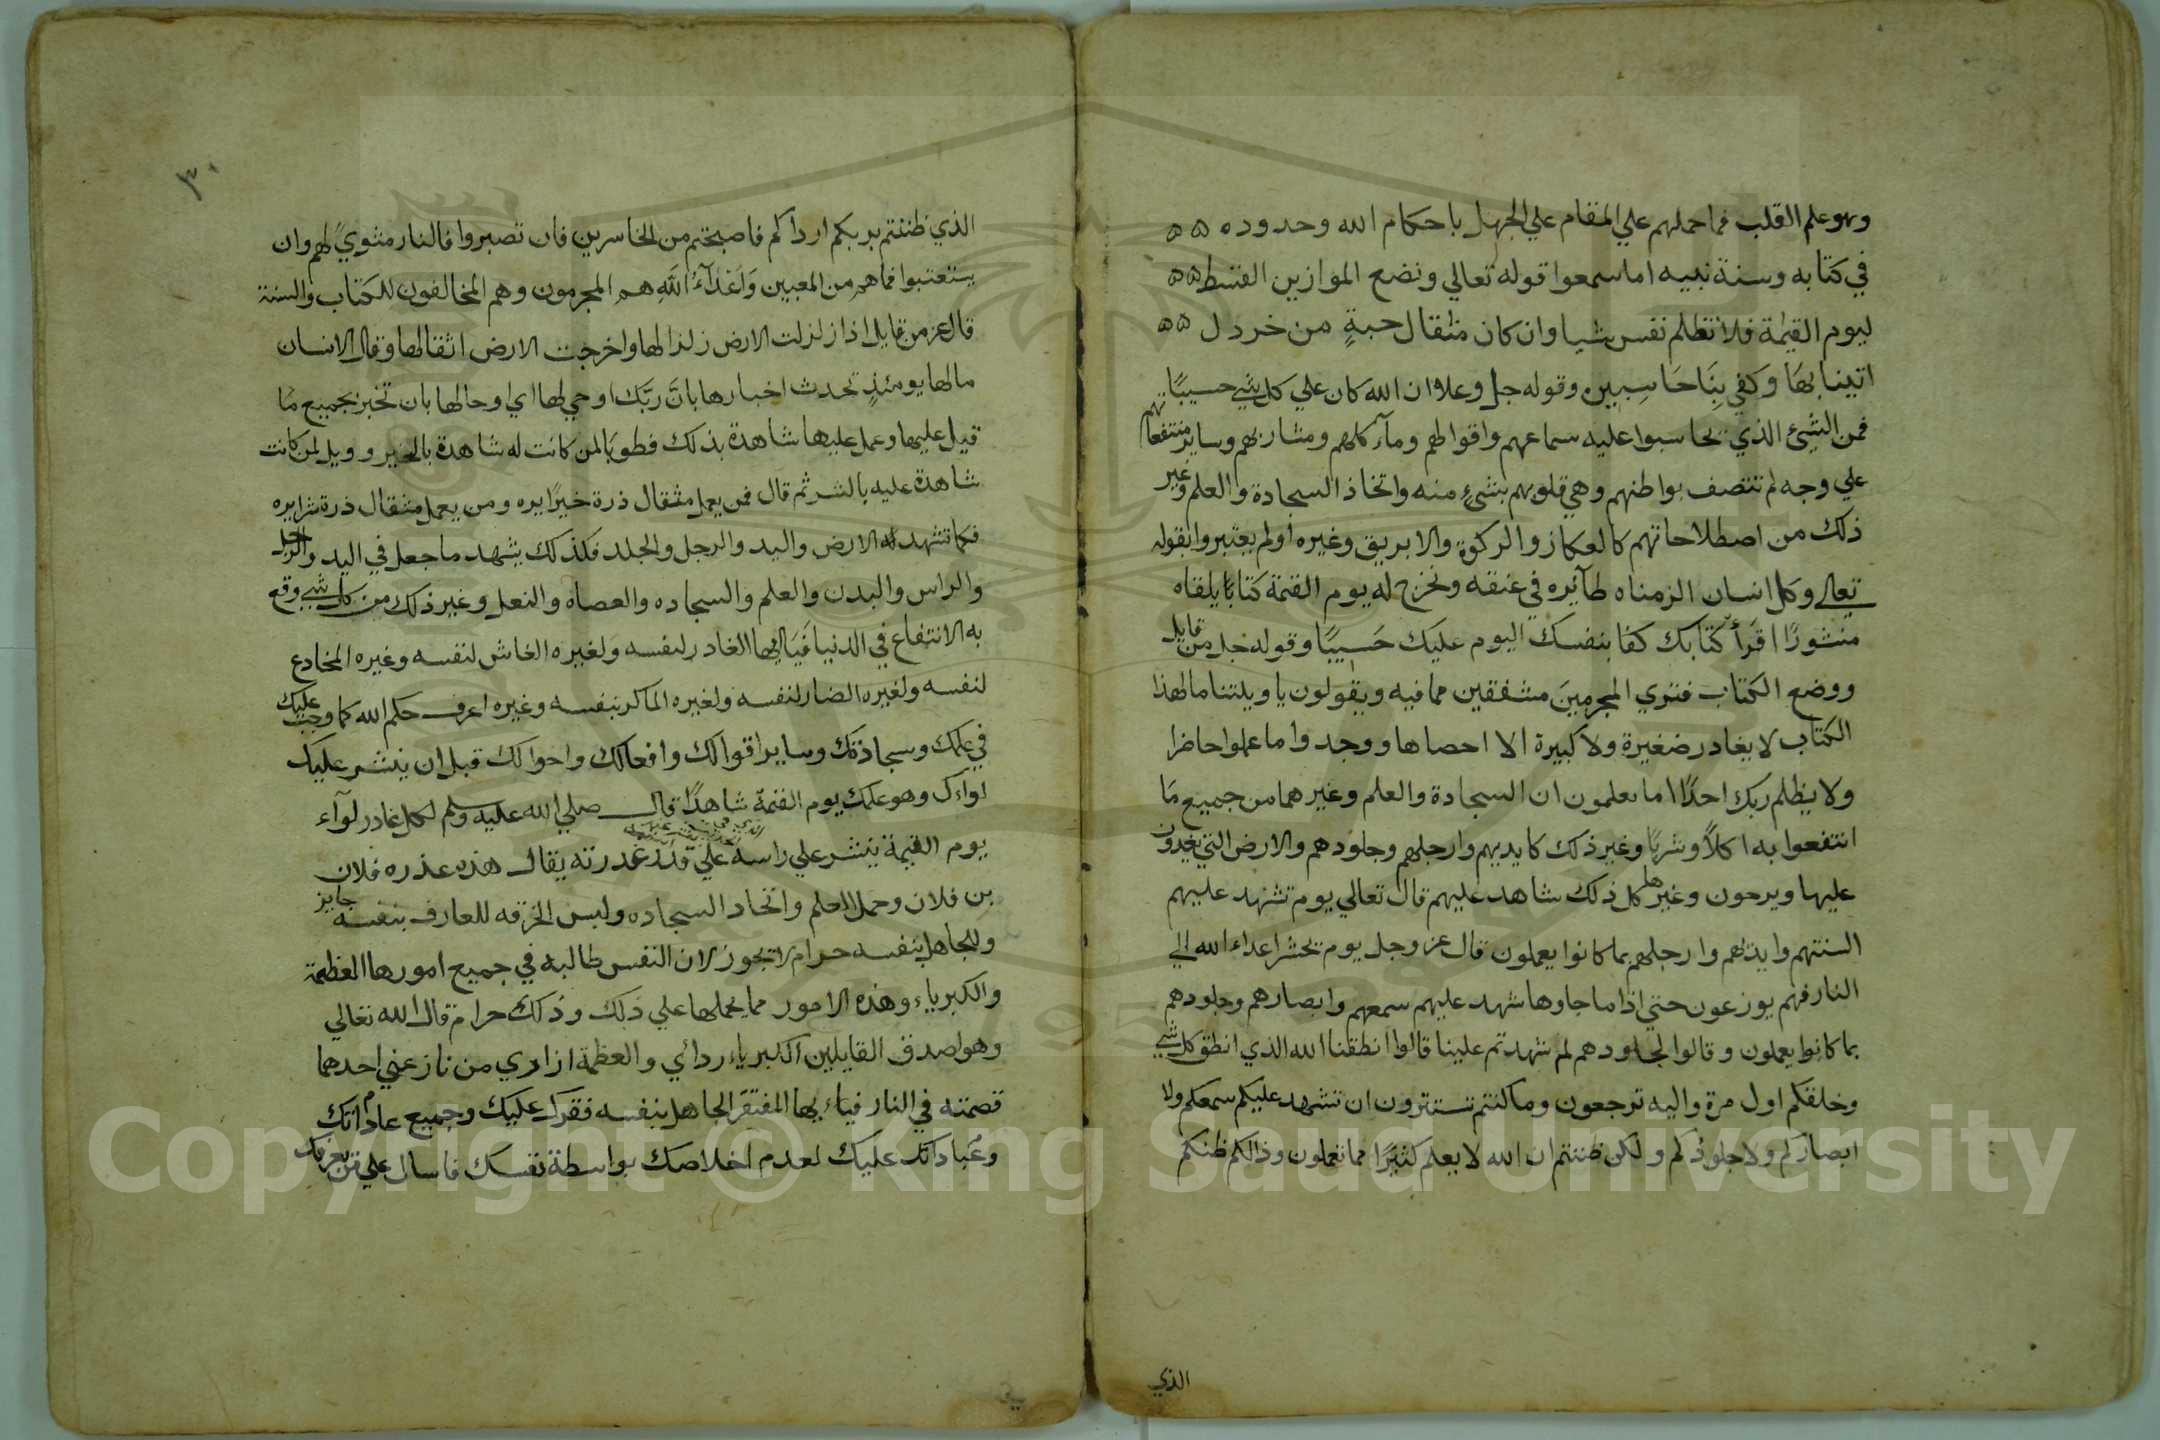 وهو علم القلب فما حملهم علي المقام علي الجهل باحكام الله وحدوده ه ه
في كتابه وسنة نبيه اما سمعوا قوله تعالي ونضع الموازين القسط ه ه
ليوم القيمة فلا تظلم نفس شيا وان كان مثقال حبةٍ من خردل ه ه
اتينا بها وكفي بِنَا حَاسِبِين وقوله جل وعلا وان الله كان علي كل شي حسيبًا
فمن الشيئ الذي يحاسبوا عليه سماعهم واقوالهم ومآكلهم ومشاربهم وساير منتفعاتهم
علي وجه لم تتصف بواطنهم وهي قلوبهم بشيءٍ منه واتخاذ السجادة والعلم وغير
ذلك من اصطلاحاتهم كالعكاز والركوة والابريق وغيره اولم يعتبروا بقوله
تعالي وكل انسان الزمناه طآئره في عنقه ونخرج له يوم القيمة كتابًا يلقاه
منشورًا اقرَأ كتابك كفا بنفسك اليوم عليك حَسيبًا وقوله جل من قايل
ووضع الكتاب فتري المجرمِينَ مشفقين مما فيه ويقولون يا ويلتنا مالهذا
الكتاب لا يغادر صغيرة ولا كبيرة الا احصاها ووجدوا ما عملوا حاضرا
ولا يظلم ربك احدًا اما يعلمون ان السجادة والعلم وغيرهما من جميع مَا
انتفعوا به اكلاً وشربًا وغير ذلك كايديهم وارجلهم وجلودهم والارض التي يغدون
عليها ويرحون وغيرها كل ذلك شاهد عليهم قال تعالي يوم تشهد عليهم
السنتهم وايديهم وارجلهم بما كانوا يعملون قال عز وجل يوم يحشر اعداء الله الي
النار فهم يوزعون حتي اذا ما جاوها شهد عليهم سمعهم وابصارهم وجلودهم
بما كانوا يعملون وقالوا لجلودهم لم شهدتم علينا قالوا انطقنا الله الذي انطق كل شي
وخلقكم اول مرة واليه ترجعون وما كنتم تستترون ان تشهد عليكم سمعكم ولا
ابصاركم ولا جلودكم ولكن ظننتم ان الله لا يعلم كثيرًا مما تعملون وذالكم ظنكم
الذي
٣٠
الذي ظننتم بربكم ارداكم فاصبحتم من الخاسرين فان تصبروا فالنار مثويً لهم وان
يستعتبوا فما هم من المعبين وَاَعْدَآءُ اللّهِ هم المجرمون وهم المخالفون للكتاب والسنة
قال عز من قايل اذا زلزلت الارض زلزالها واخرجت الارض اثقالها وقال الانسان
مالها يومئذٍ تحدث اخبارها بانّ ربّك اوحي لها اي اوحالها بان تخبر بجميع مَا
قيل عليها وعمل عليها شاهدة بذلك فطوبا لمن كانت له شاهدة بالخير وويل لمن كانت
شاهدة عليه بالشر ثم قال فمن يعمل مثقال ذرة خيرًا يره ومن يعمل مثقال ذرة شرا يره
فكما تشهد له الارض واليد والرجل والجلد فكذلك يشهد ما جعل في اليد والرجل
والراس والبدن والعلم والسجاده والعصاه والنعل وغير ذلك من كل شي وقع
به الانتفاع في الدنيا فيَا ايها الغادر لنفسه ولغيره الغاش لنفسه وغيره المخادع
لنفسه ولغيره الضار لنفسه ولغيره الماكر بنفسه وغيره اعرف حكم الله كما وجب عليك
في علمك وسجادتك وساير اقوالك وافعالك واحوالك قبل ان ينشر عليك
لواءك وهو علمك يوم القيمة شاهدًا قال صلي الله عليه وسلم لكل غادر لوآء
يوم القيمة ينشر علي راسه علي قدر غدرته يقال هذه عذره فلان
بن فلان وحمل العلم واتخاد السجاده ولبس الخرقه للعارف بنفسه جايز
وللجاهل بنفسه حرام لا تجوز لان النفس طالبه في جميع امورها العظمة
والكبرياء وهذه الامور مما يحملها علي ذلك وذلك حرام قال الله تعالي
وهو اصدق القايلين الكبرياء ردائي والعظمة ازاري من نازعني احدهما
قصمته في النار فياء يها المفتقر الجاهل بنفسه فقرك عليك وجميع عاداتك
وعباداتك عليك لعدم اخلاصك بواسطة نفسك فاسال علي من يعرفك
Copyright © King Saud University